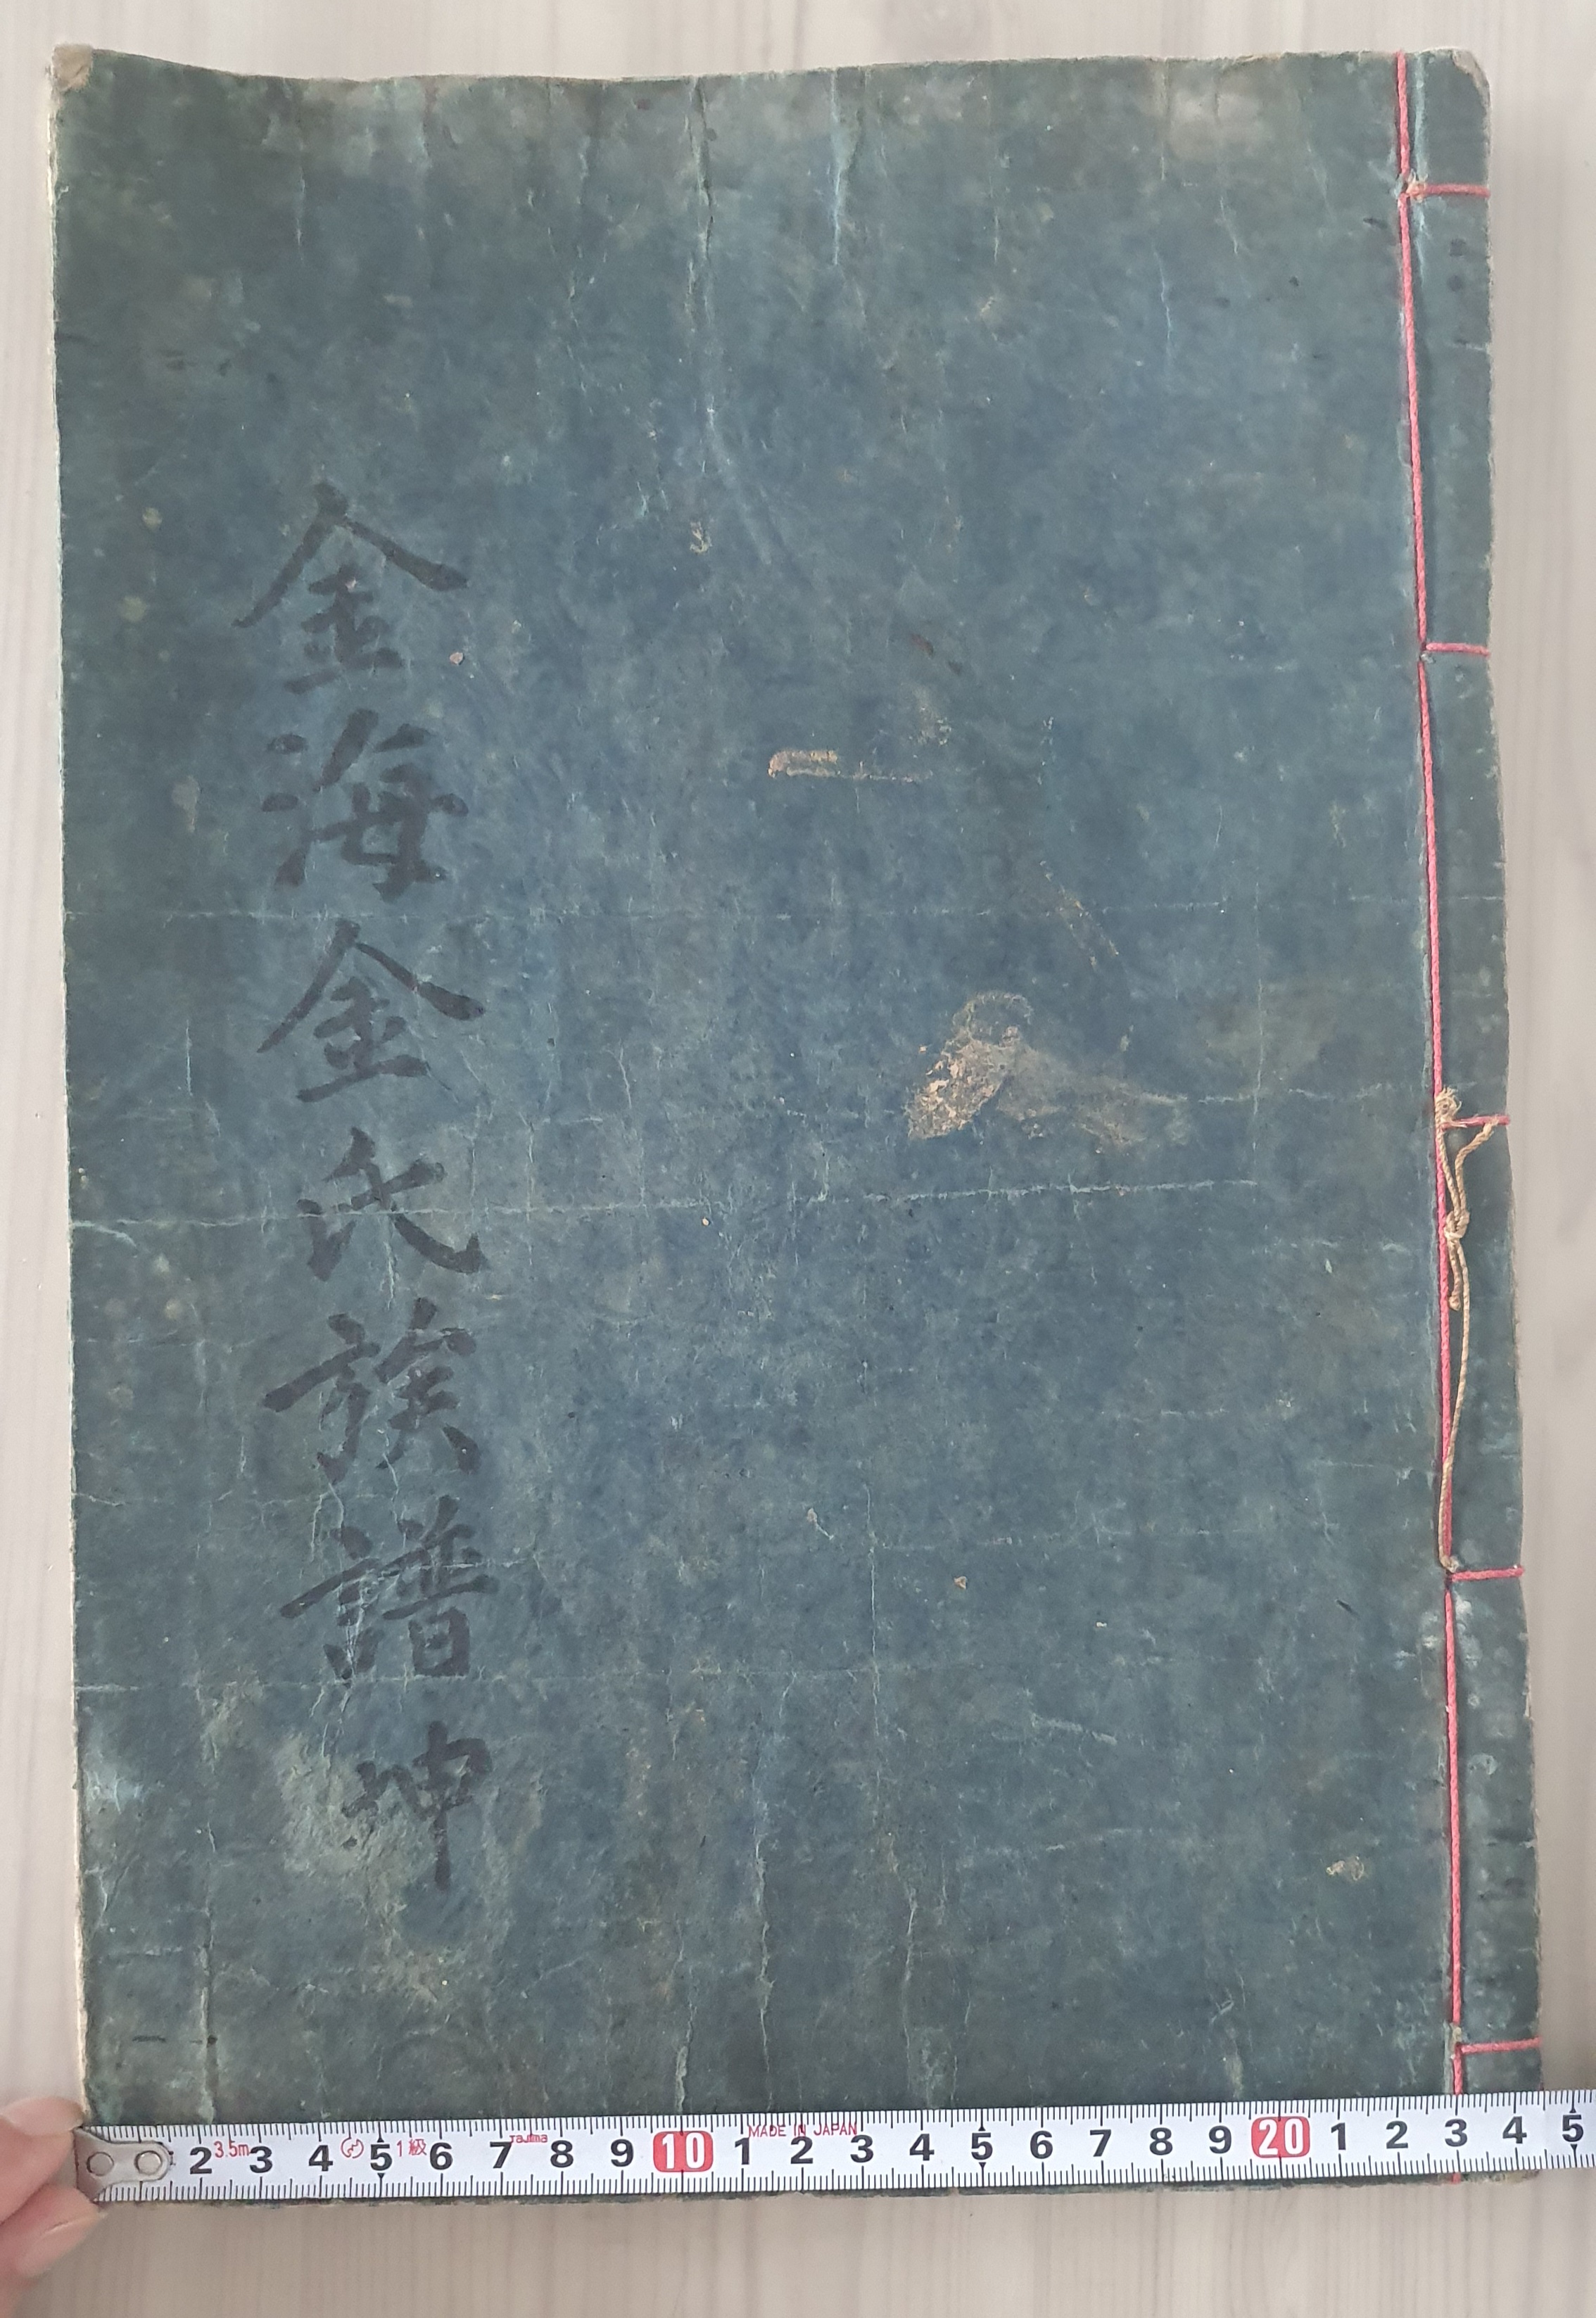 金海金氏族譜 坤
2 3 4 5 6 7 8 9 10 1 2 3 4 5 6 7 8 9 20 1 2 3 4 5
3.5m 1級 Tajima MADE IN JAPAN